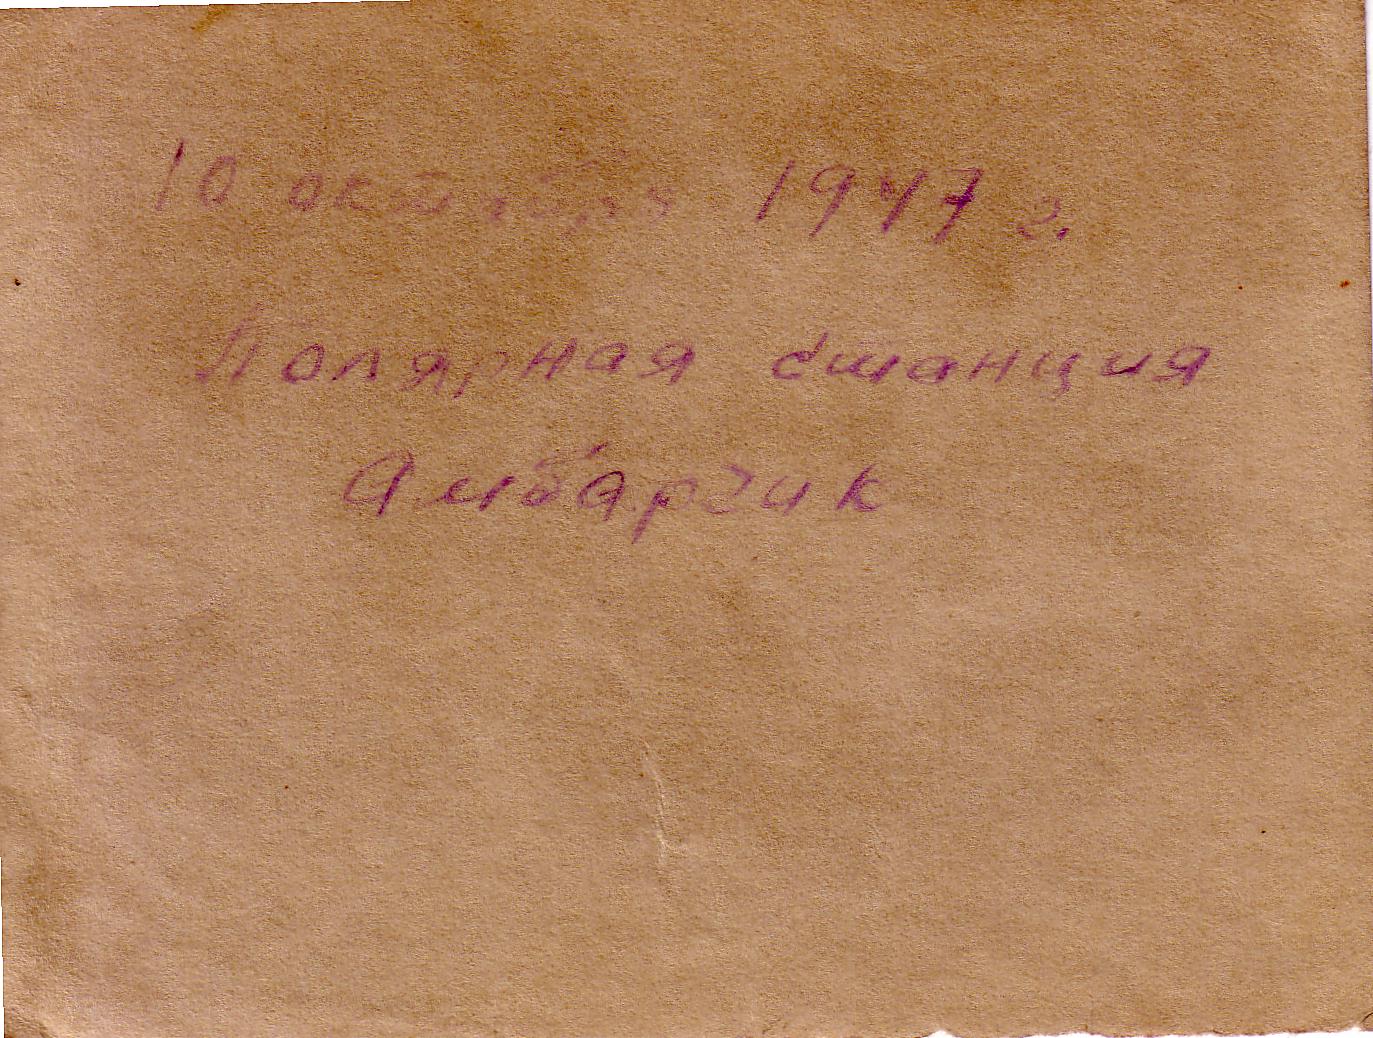 10 октября 1947 г.
Полярная станция
Амбарчик